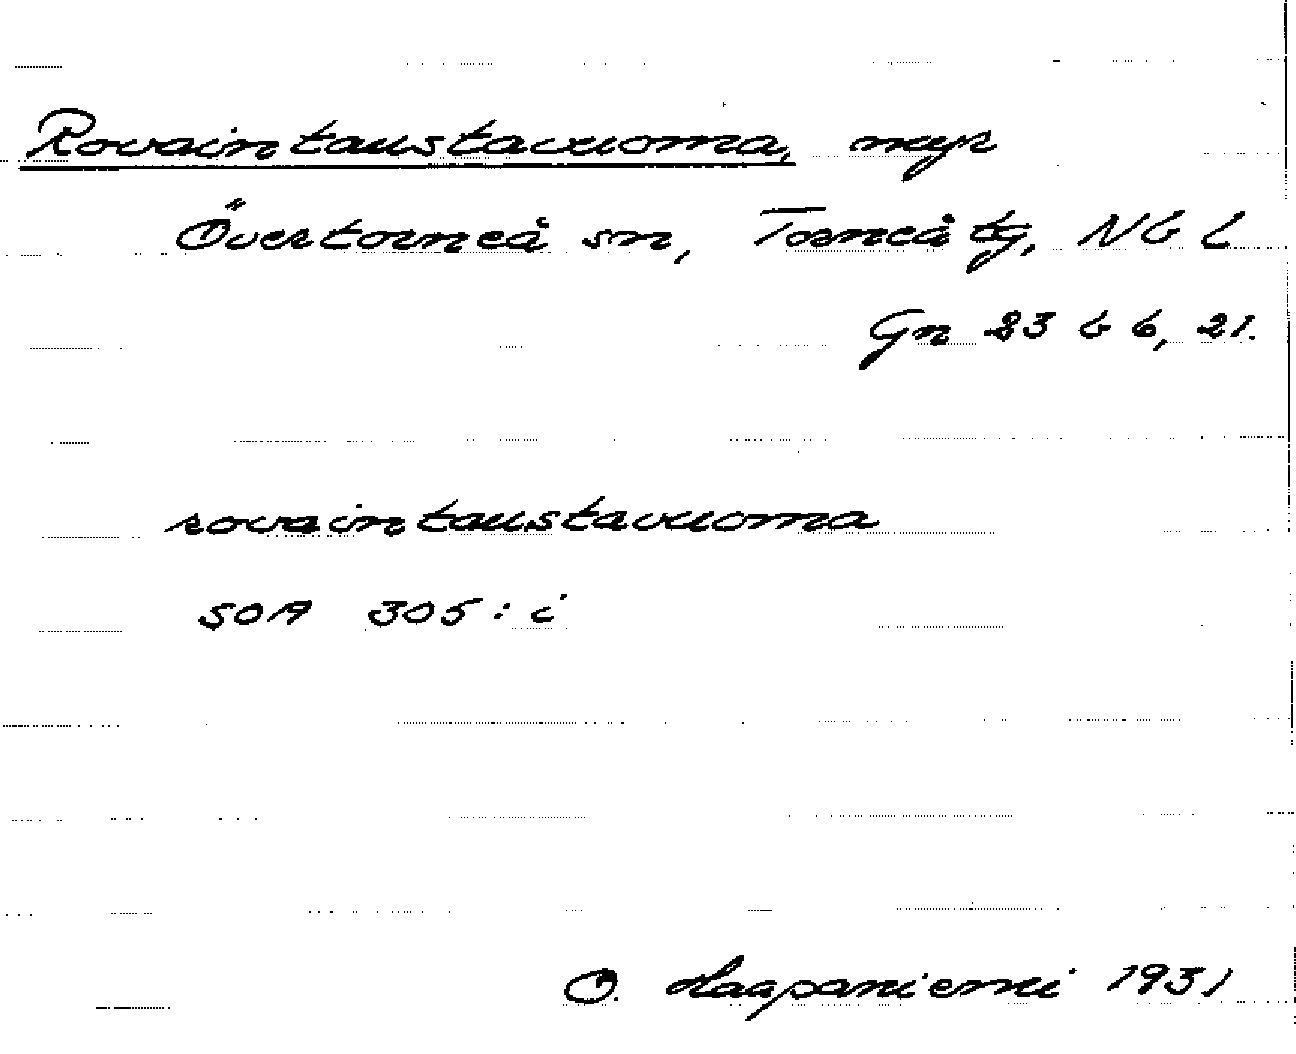 Rovaintaustavuoma, myr
Övertorneå sn, Torneå tg, Nb L
Gn 23 b 6, 21.
rovaintaustavuoma
SOA 305: i
O. Haapaniemi 1931